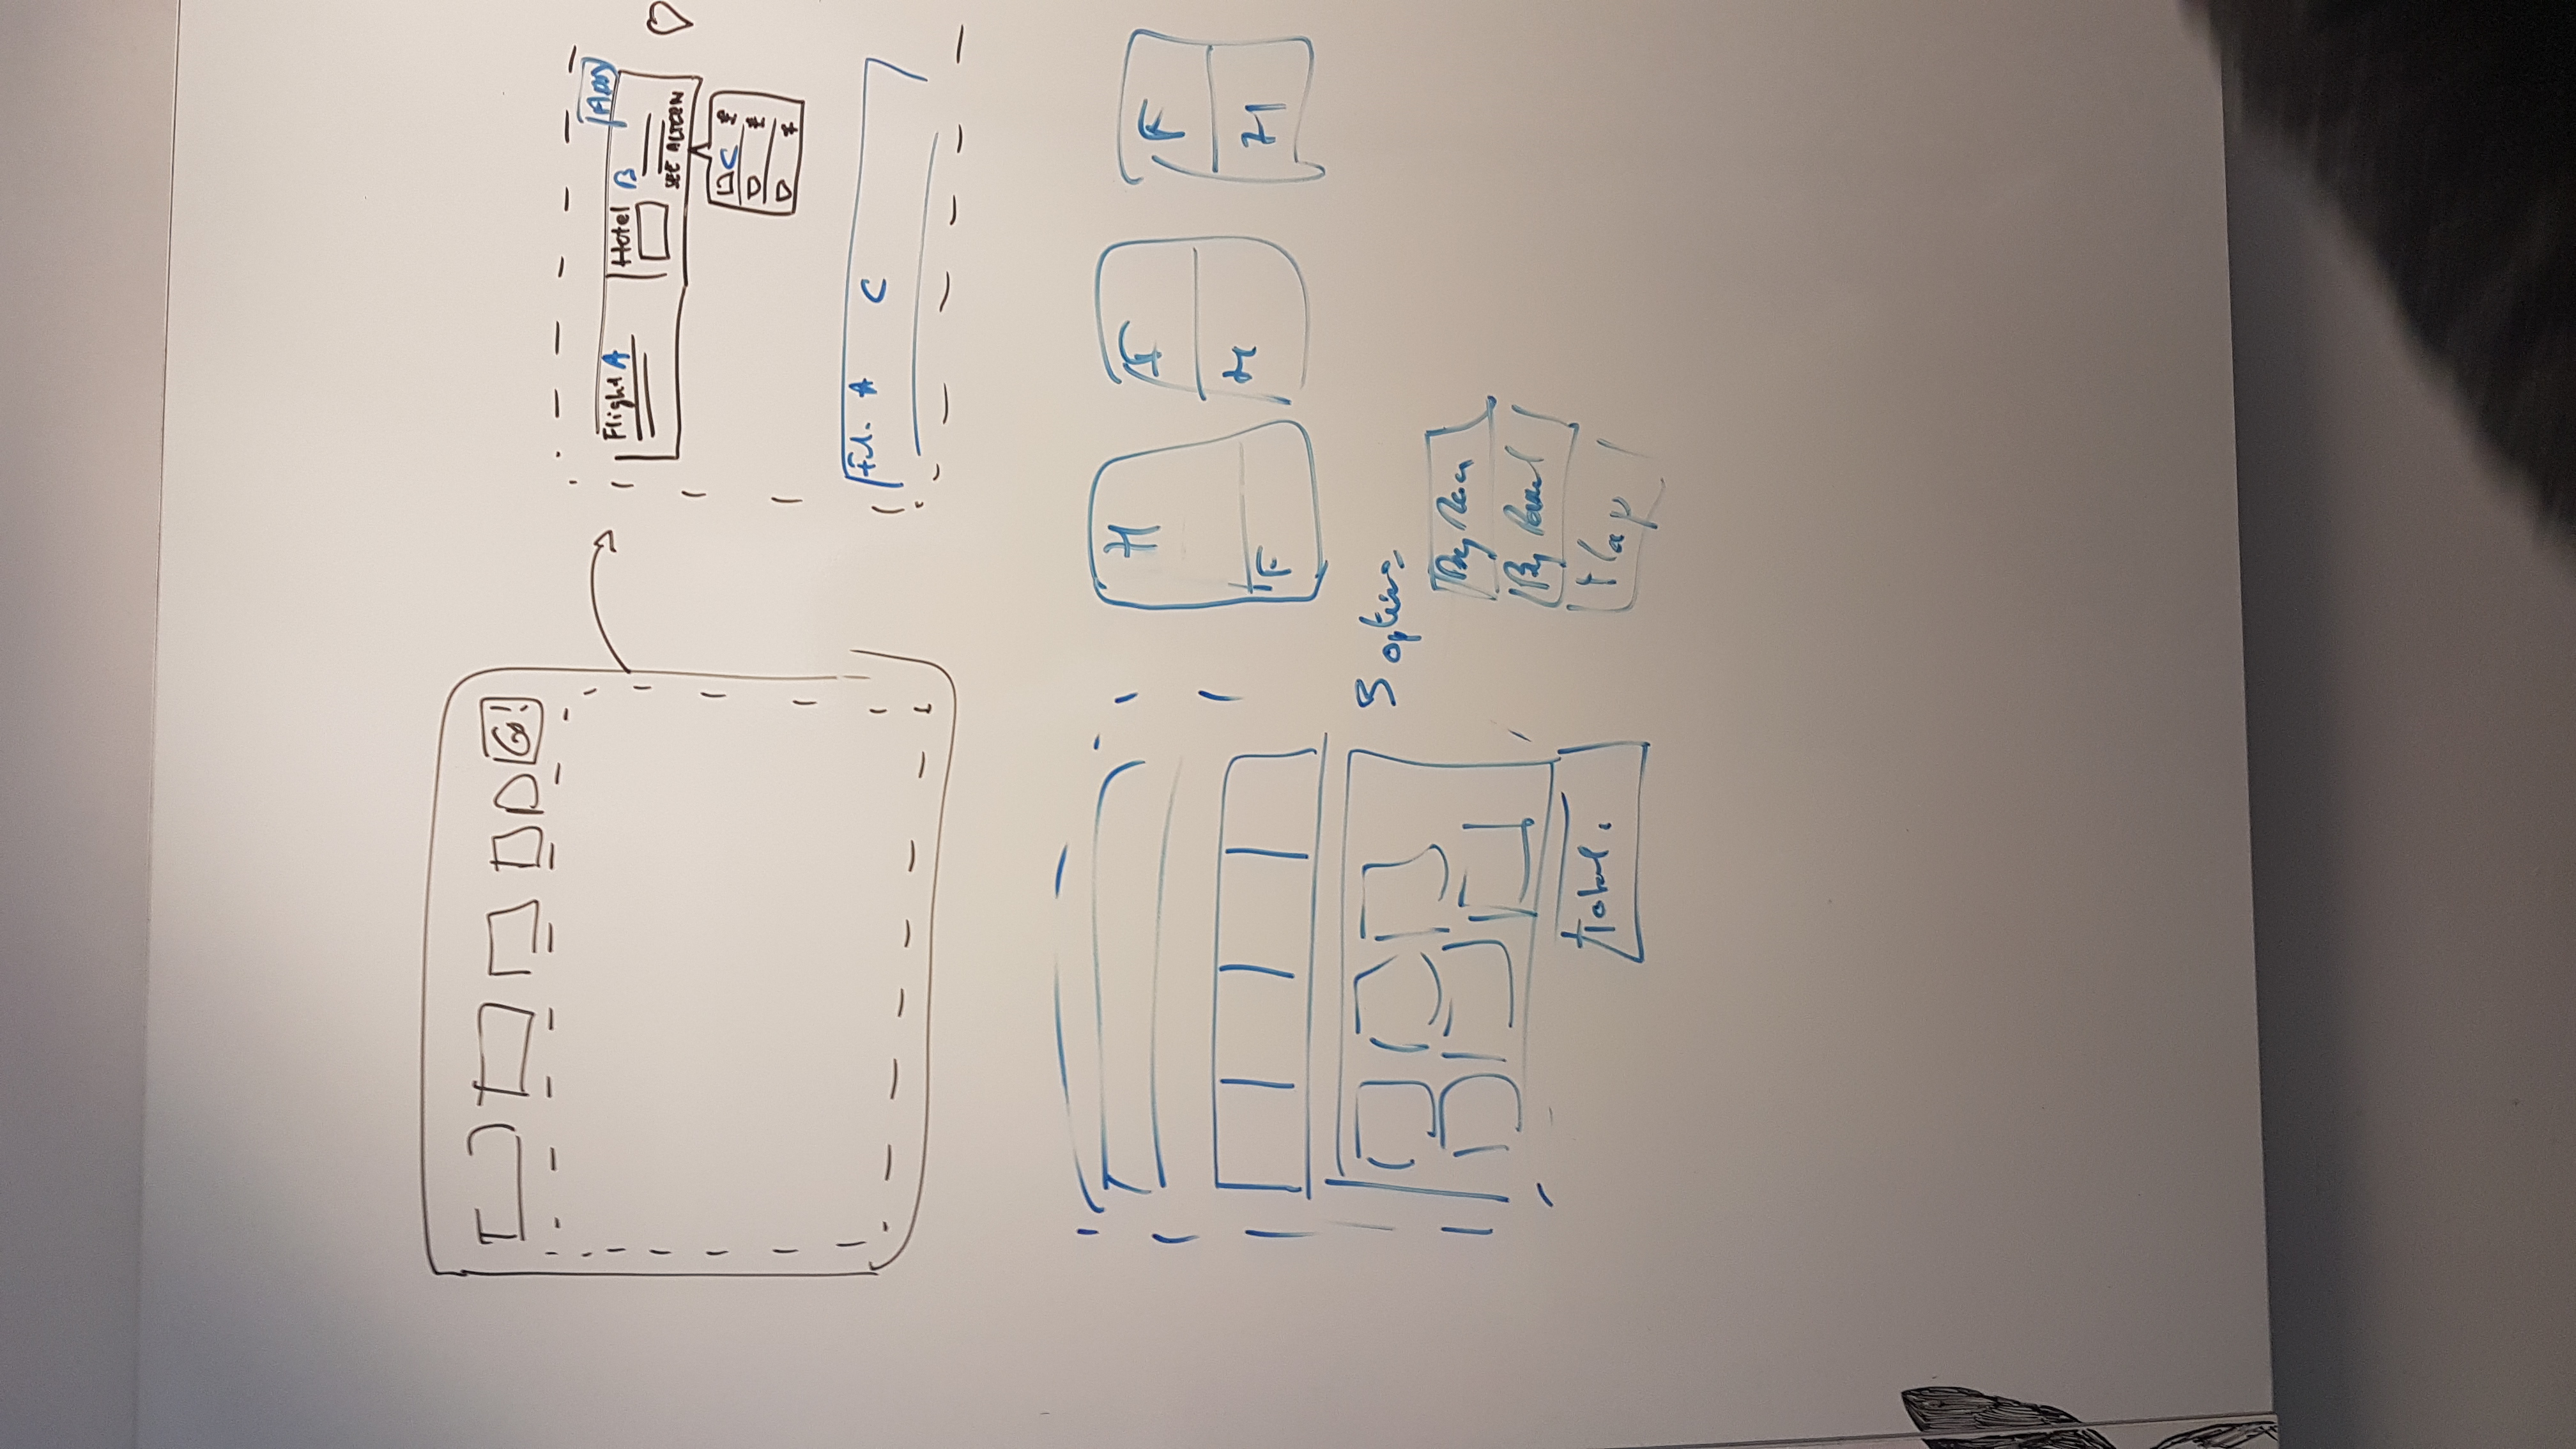 Go!
Flight A
Hotel B
SEE ALTERN
C
A C
H
F
F
H
F
H
options
By
By
Map
total.